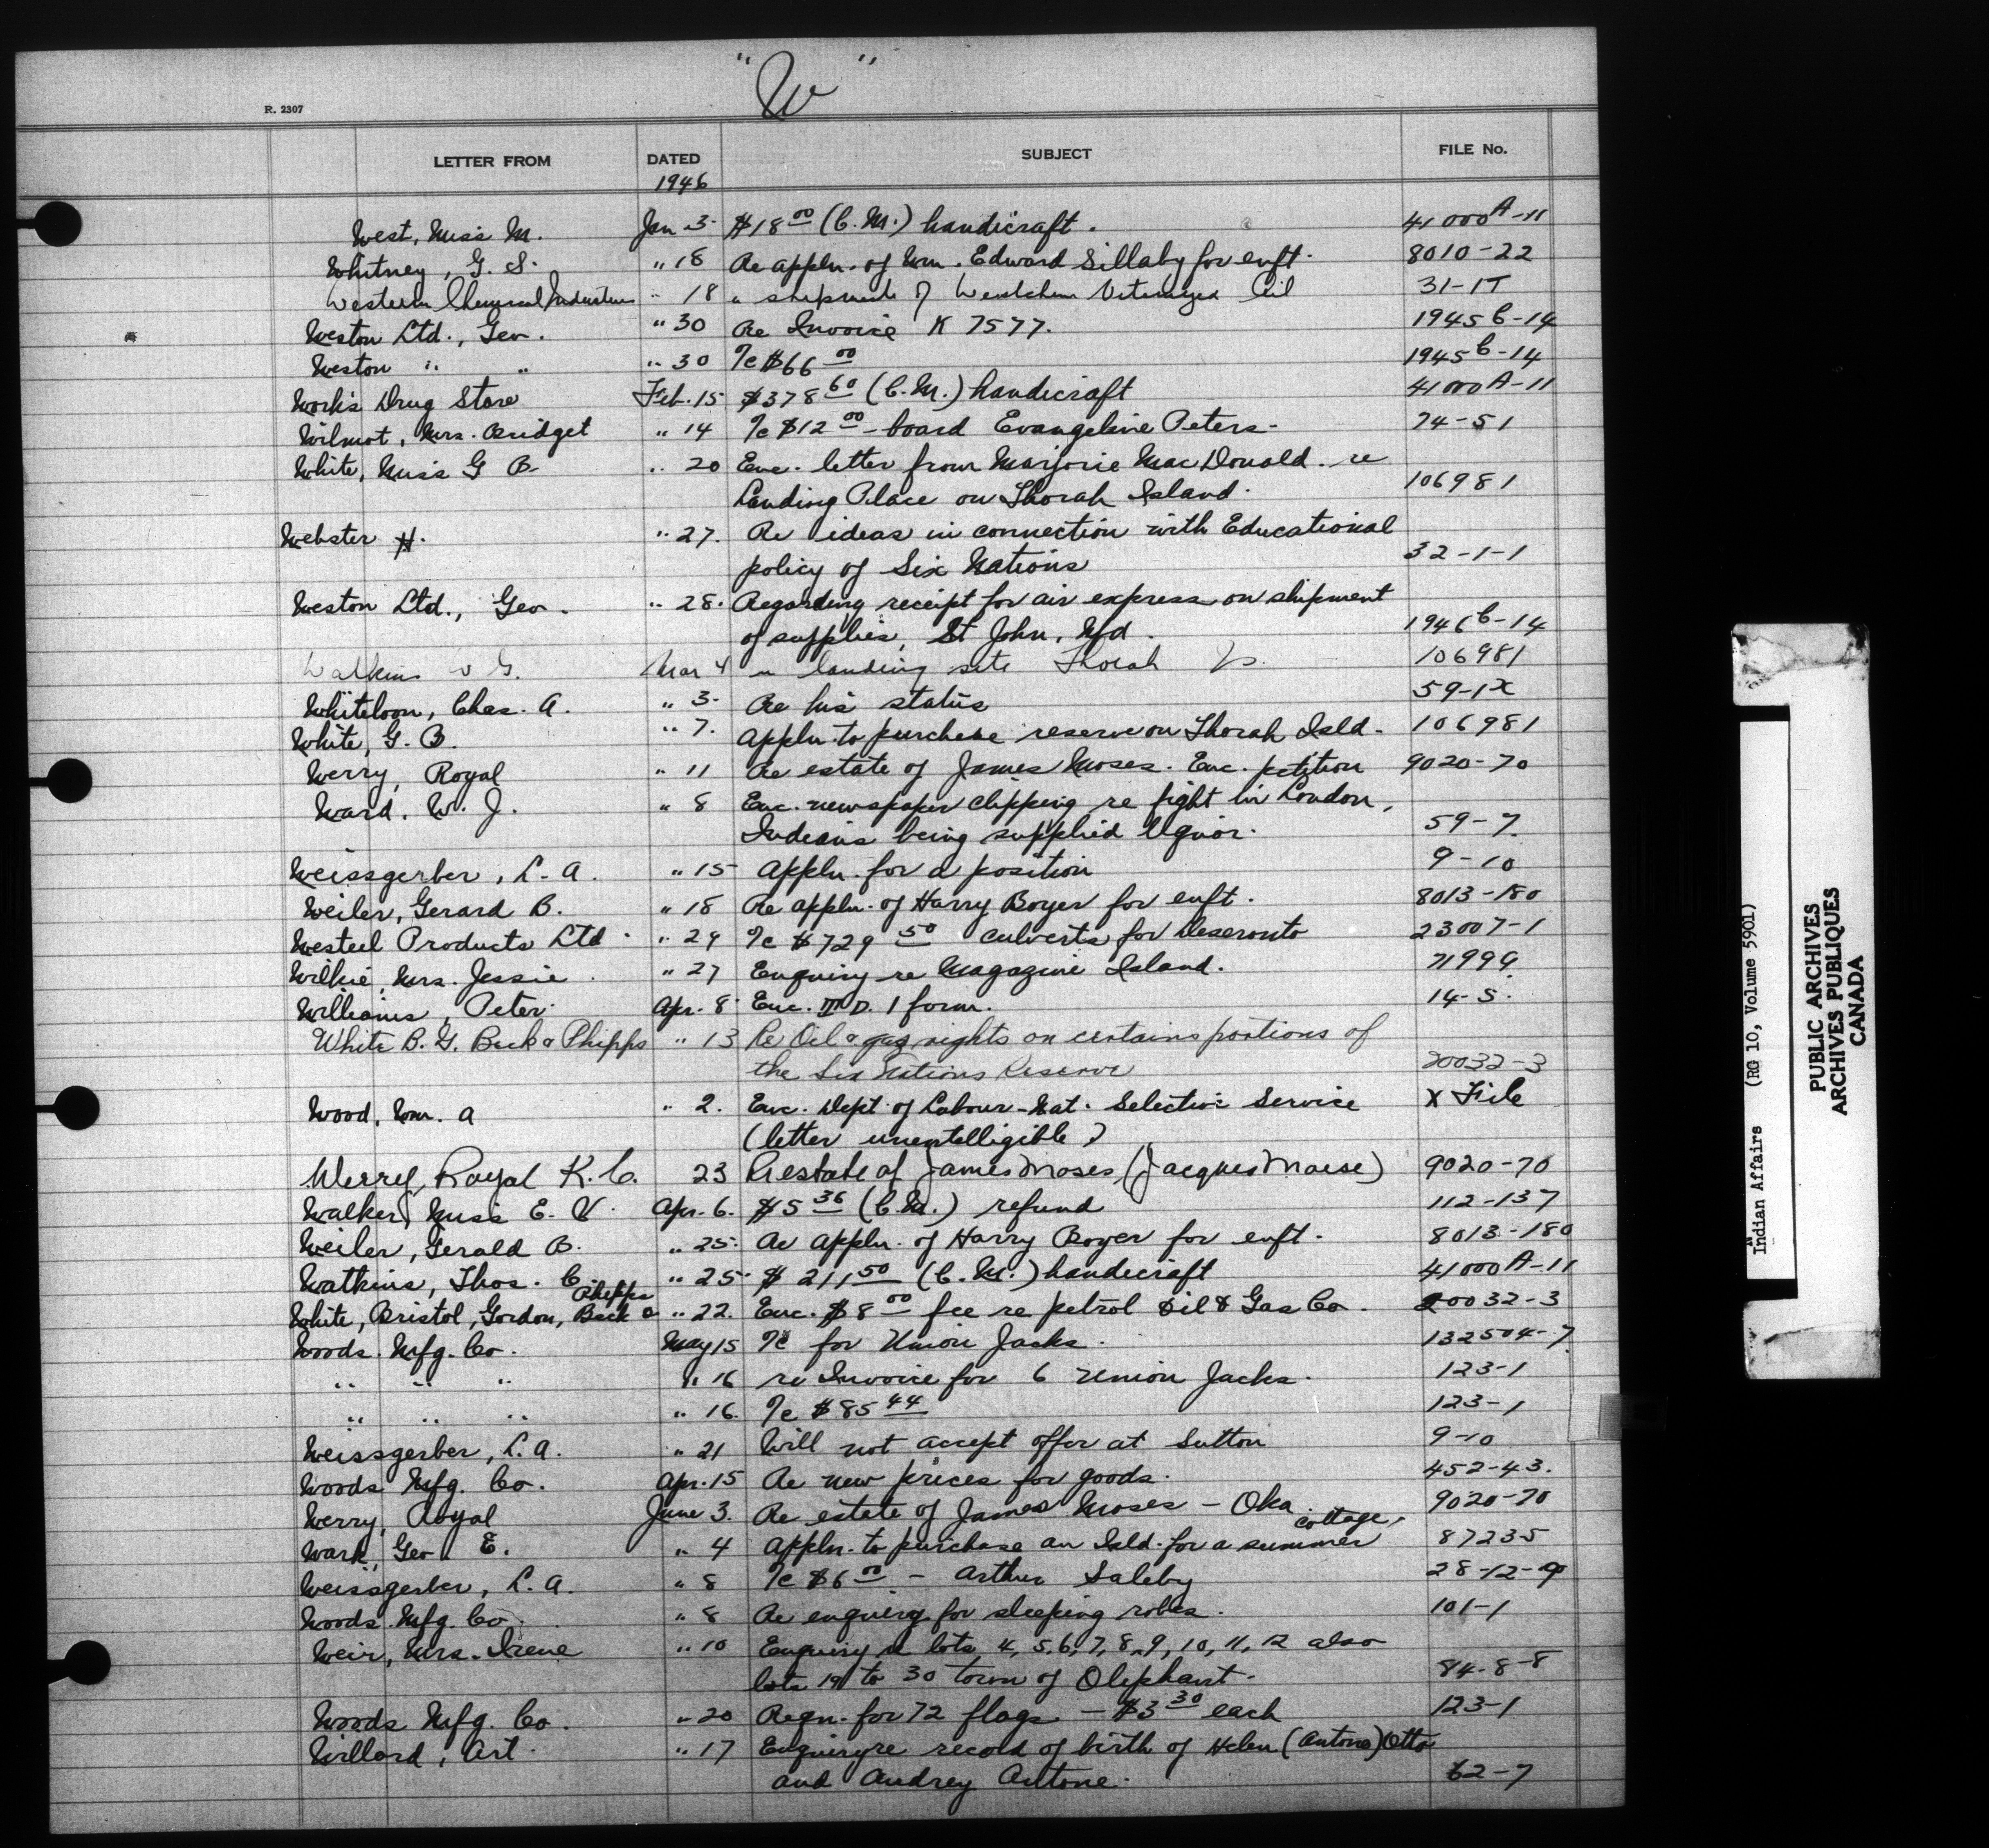 "W"
R. 2307
LETTER FROM DATED SUBJECT FILE No.
1946
West, Miss M. Jan 3 $18 00 (C.M.) handicraft. 41000A-11
Whitney, G. S. " 18 Re appln. of Wm. Edward Sillaby for enft. 8010-22
Western Chemical Industries " 18 " shipment of Westchem Oil 31-1T
Weston Ltd., Geo. " 30 Re Invoice K 7577. 1945C-14
Weston " " " 30 I/c $66 00 1945C-14
Work's Drug Store Feb. 15 $378 60 (C.M.) handicraft 41000A-11
Wilmot, Mrs. Bridget " 14 I/c $12 00 - board Evangeline Peters - 74-51
White, Miss G B " 20 Enc. letter from Marjorie MacDonald. re
Landing Place on Thorah Island. 106981
Webster H. " 27. Re ideas in connection with Educational
policy of Six Nations 32-1-1
Weston Ltd., Geo. " 28. Regarding receipt for air express on shipment
of supplies, St John, Nfd. 1946C-14
Watkins G. Mar 4 " landing site Thorah Is. 106981
Whiteloon, Chas. A. " 3 Re his status 59-1X
White, G. B. " 7. Appln. to purchase reserve on Thorah Isld. 106981
Werry, Royal " 11 Re estate of James Moses. Enc. petition 9020-70
Ward, W. J. " 8 Enc. newspaper clipping re fight in London,
Indians being supplied liquor. 59-7
Weissgerber, L. A. " 15 Appln. for a position 9-10
Weiler, Gerard B. " 18 Re appln. of Harry Boyer for enft. 8013-180
Westeel Products Ltd. " 29 I/c $729 50 culverts for Deseronto 23007-1
Wilkie, Mrs. Jessie " 27 Enquiry re Magazine Island. 71999
Williams, Peter Apr. 8 Enc. M D. 1 form. 14-5.
White B. G. Beck & Phipps " 13 Re Oil & gas rights on certains portions of
the Six Nations Reserve 20032-3
Wood, Wm. A " 2. Enc. Dept. of Labour - Nat. Selective Service X File
(letter unentelligible)
Werry, Royal K. C. 23 Re estate of James Moses (Jacques Moise) 9020-70
Walker, Miss E. V. Apr. 6. $5 36 (C.M.) refund 112-137
Weiler, Gerald B. " 25. Re appln. of Harry Boyer for enft. 8013-180
Watkins, Thos. C. " 25 $211 50 (C.M.) handicraft 41000A-11
White, Bristol, Gordon, Beck & Phipps " 22. Enc. $8 00 fee re petrol Oil & Gas Co. 20032-3
Woods Mfg. Co. May 15 I/c for Union Jacks. 132504-7
" " " " 16 re Invoice for 6 Union Jacks. 123-1
" " " " 16. I/c $85 44 123-1
Weissgerber, L. A. " 21 Will not accept offer at Sutton 9-10
Woods Mfg. Co. Apr. 15 Re new prices for goods. 452-43.
Werry, Royal June 3. Re estate of James Moses - Oka. 9020-70
Wark, Geo. E. " 4 Appln. to purchase an Isld. for a summer cottage, 87235
Weissgerber, L. A. " 8 I/c $6 00 - Arthur Saleby 28-12-9
Woods Mfg. Co. " 8 Re enquiry for sleeping robes. 101-1
Weir, Mrs. Irene " 10 Enquiry re lots 4, 5, 6, 7, 8, 9, 10, 11, 12 also
lots 19 to 30 town of Oliphant. 84-8-8
Woods Mfg. Co. " 20 Reqn. for 72 flags - $3 30 each 123-1
Willard, Art. " 17 Enquiry re record of birth of Helen (Antone) Otto
and Audrey Antone. 62-7
Indian Affairs (RG 10, Volume 5901)
PUBLIC ARCHIVES
ARCHIVES PUBLIQUES
CANADA